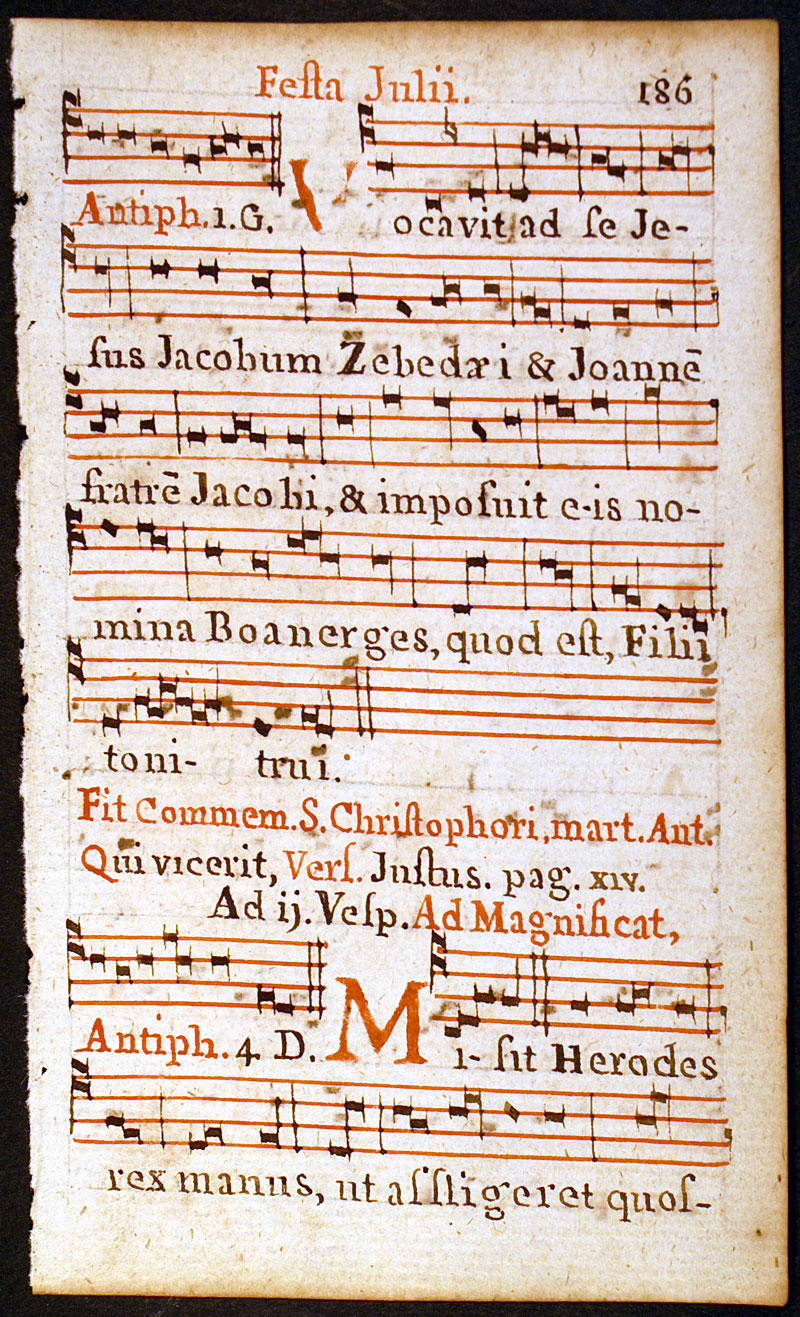 Feſta Julii. 186
Antiph. 1. G. Vocavit ad ſe Je-
ſus Jacobum Zebedæi & Joannē
fratrē Jacobi, & impoſuit e-is no-
mina Boanerges, quod eſt, Filii
toni- trui.
Fit Commem. S. Chriſtophori, mart. Ant.
Qui vicerit, Verſ. Juſtus. pag. xiv.
Ad ij. Veſp. Ad Magnificat,
Antiph. 4 D. Mi- ſit Herodes
rex manus, ut aſſligeret quoſ-